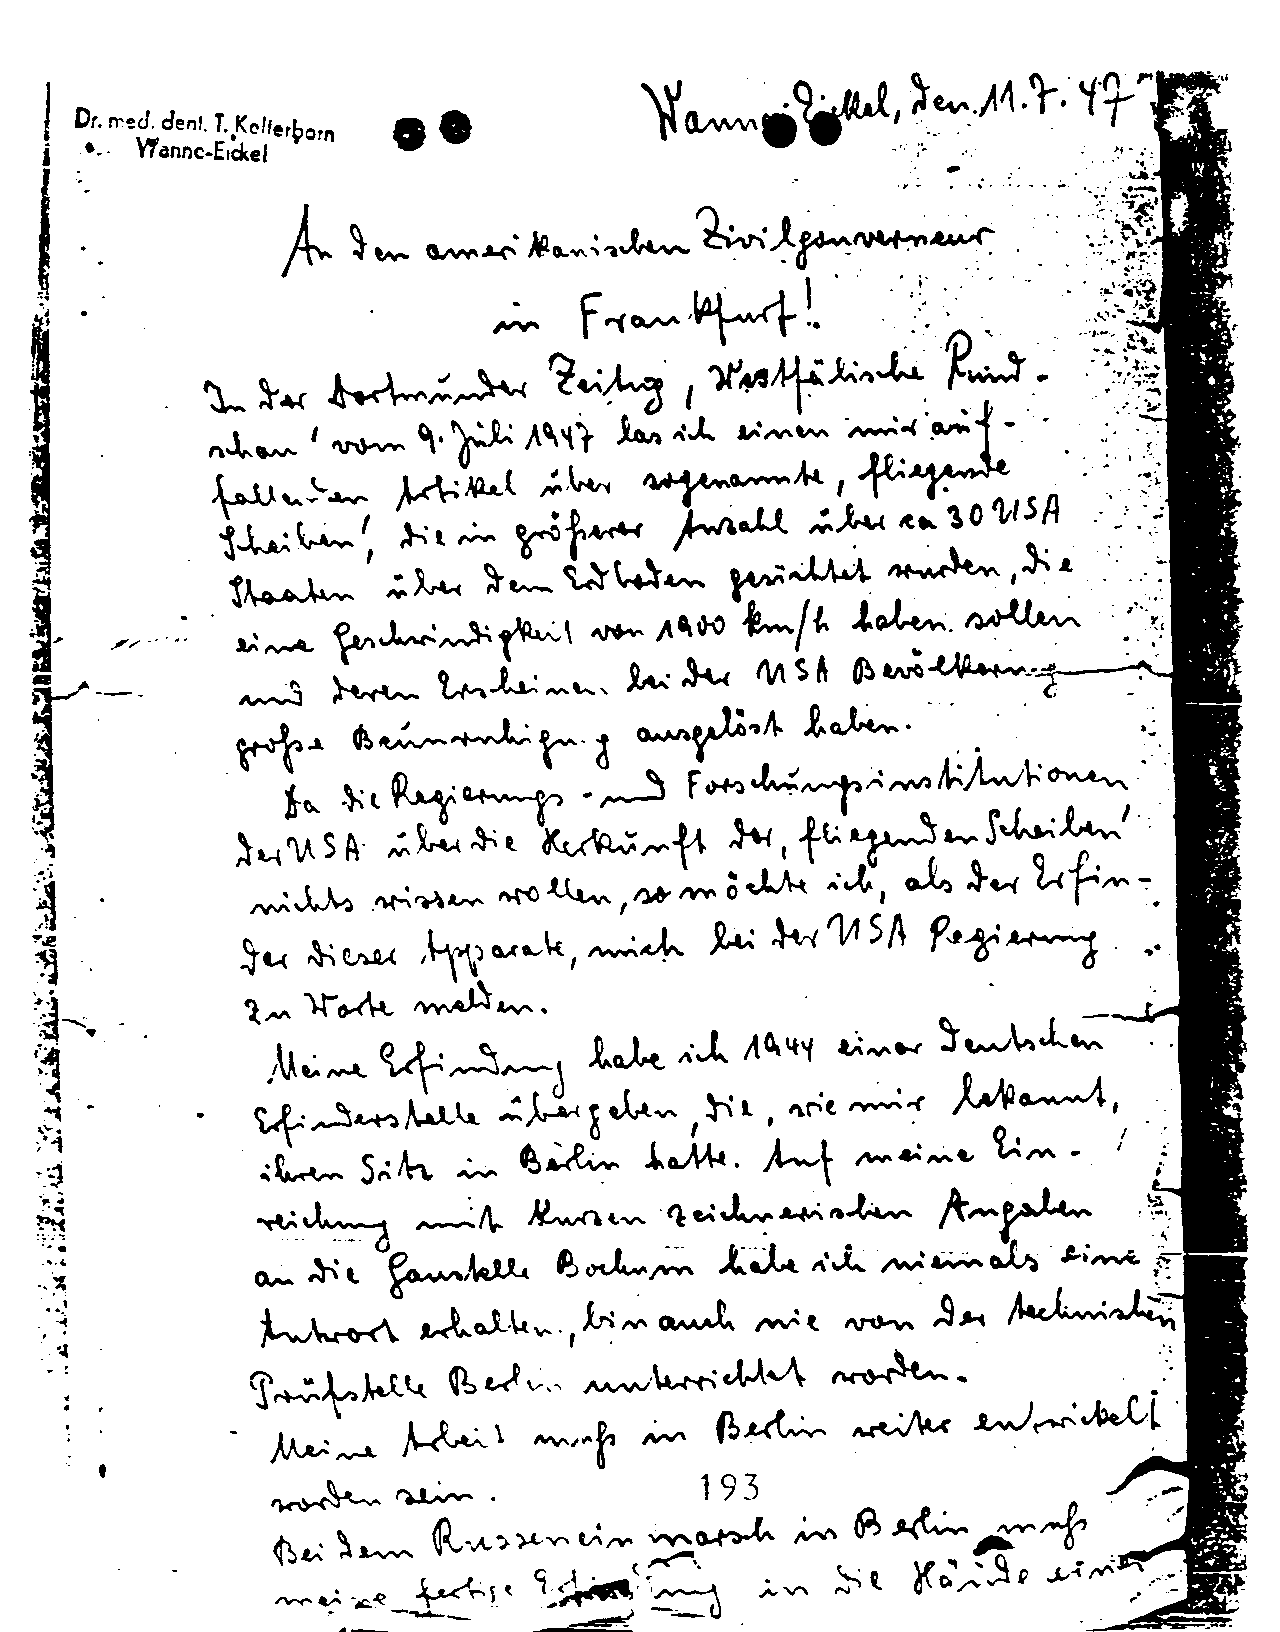 Dr. med. dent. T. Kolterborn
Wanne-Eickel
Wanne-Eickel, den 11.7.47
An den amerikanischen Zivilgouverneur
in Frankfurt!
In der Dortmunder Zeitung, Westfälische Rund-
schau' vom 9. Juli 1947 las ich einen mir auf-
fallenden Artikel über sogenannte, fliegende
Scheiben', die in größerer Anzahl über ca 30 USA
Staaten über dem Erdboden gesichtet wurden, die
eine Geschwindigkeit von 1900 km/h haben sollen
und deren Erscheinen bei der USA Bevölkerung
große Beunruhigung ausgelöst haben.
Da die Regierungs- und Forschungsinstitutionen
der USA über die Herkunft der, fliegenden Scheiben'
nichts wissen wollen, so möchte ich, als der Erfin-
der dieser Apparate, mich bei der USA Regierung
zu Worte melden.
Meine Erfindung habe ich 1944 einer deutschen
Erfinderstelle übergeben, die, wie mir bekannt,
ihren Sitz in Berlin hatte. Auf meine Ein-
reichung mit kurzen zeichnerischen Angaben
an die Gaustelle Bochum habe ich niemals eine
Antwort erhalten, bin auch nie von der technischen
Prüfstelle Berlin unterrichtet worden.
Meine Arbeit muß in Berlin weiter entwickelt
worden sein.
193
Bei dem Russeneinmarsch in Berlin muß
meine fertige Erfindung in die Hände einer